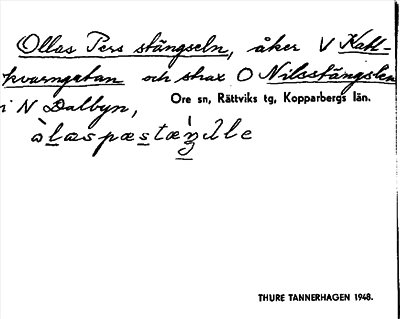 Ollas Pers stängseln, åker V Katt-
kvarngattan och strax O Nilsstängslen
i N Dalbyn,
Ore sn, Rättviks tg, Kopparbergs län.
THURE TANNERHAGEN 1948.